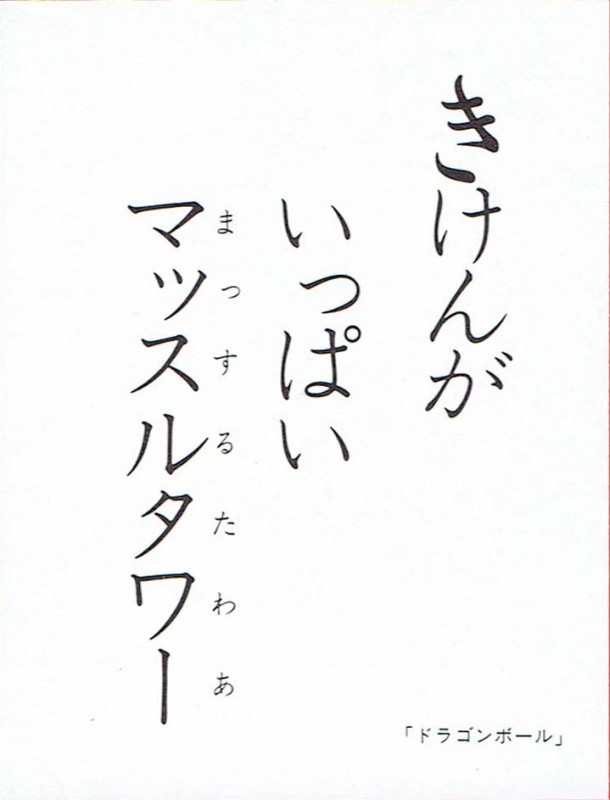 きけんが
いっぱい
マッスルタワー
まっするたわあ
「ドラゴンボール」